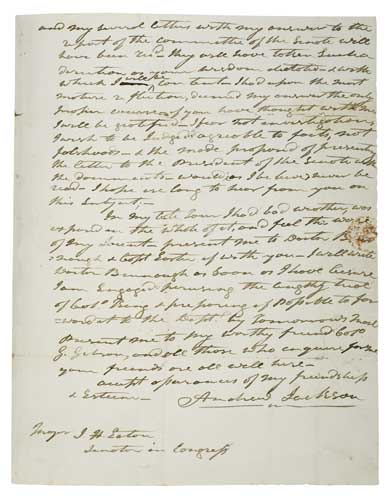 and my several letters with my answer to the
report of the committee of the Senate will
have been recd. they will have taken such a
direction as your wisdom dictated & with
which I will be content I had upon the most
mature reflection, deemed my answer the only
proper course, & if you have thought with me
I will be gratified, I fear not investigation,
I wish to be Judged agreable to facts, not
falshood, and the mode proposed of presenting
the letter to the President of the Senate with
the documents would, as I believe, never be
read. I hope ere long to hear from you on
this subject.
In my late tour I had bad weather, was
exposed in the whole of it, and feel the
of my present me to Doctor
& Capt Easter, if with you. I will write
Doctor as soon as I have leisure
I am Engaged perusing the lengthy trial
of Colo. King & preparing a to for-
ward it to the Dept by tomorrows mail
present me to my worthy friend Colo
G. Gibson, and all those who enquire for me
your friends are all well here
accept assurances of my friendship
& Esteem
Andrew Jackson
Major J H Eaton
Senator in Congress